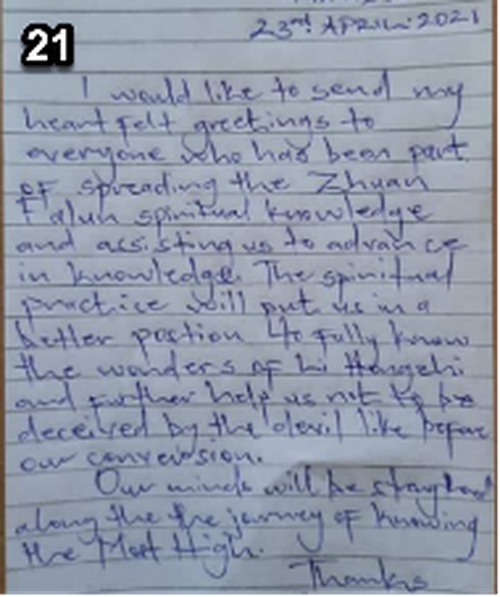 21
23rd APRIL 2021
I would like to send my
heart felt greetings to
everyone who has been part
of spreading the Zhuan
Falun spiritual knowledge
and assisting us to advance
in knowledge. The spiritual
practice will put us in a
better postion to fully know
the wonders of Li Hongzhi
and further help us not to be
deceived by the devil like before
our conversion.
Our minds will be
along the the journey of knowing
the Most High.
Thanks